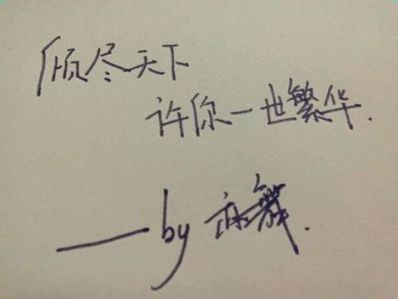 倾尽天下
许你一世繁华.
——by 亦舞.